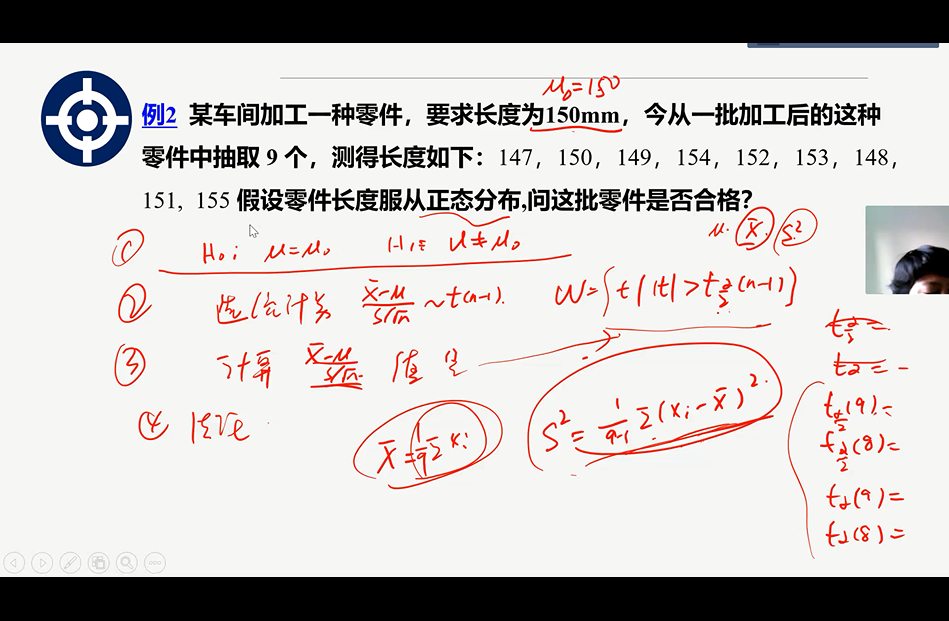 μ₀=150
例2 某车间加工一种零件，要求长度为150mm，今从一批加工后的这种
零件中抽取 9 个，测得长度如下：147，150，149，154，152，153，148，
151, 155 假设零件长度服从正态分布,问这批零件是否合格？
μ. X̄. S²
① H₀: μ=μ₀ H₁: μ≠μ₀
② 选统计量 X̄-μ/S/√n ~t(n-1). W={t||t|>t_{α/2}(n-1)}
③ 计算 X̄-μ/S/√n 值
④
X̄=1/9 Σxᵢ
S²=1/9-1 Σ(xᵢ-X̄)².
t_{α/2}=
tα=-
t_{α/2}(9)=
t_{α/2}(8)=
tα(9)=
tα(8)=